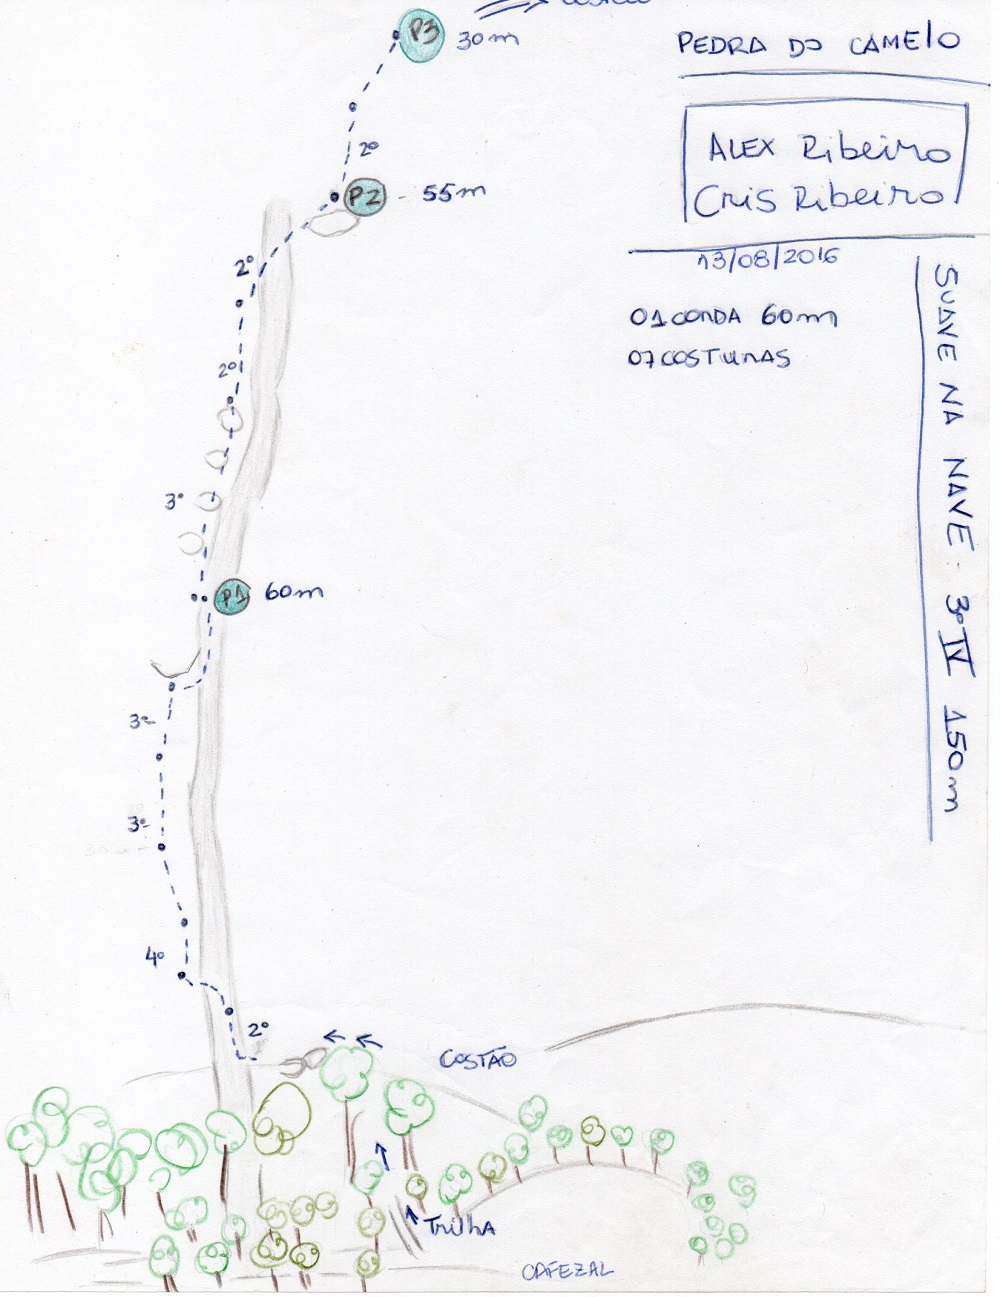 P3 30m
PEDRA DO CAMELO
ALEX Ribeiro
Cris Ribeiro
2º
P2 - 55m
13/08/2016
2º
01 CORDA 60m
07 COSTURAS
SUAVE NA NAVE - 3º IV 150m
2º
3º
P1 60m
3º
3º
4º
2º
COSTÃO
TRilhA
CAFEZAL